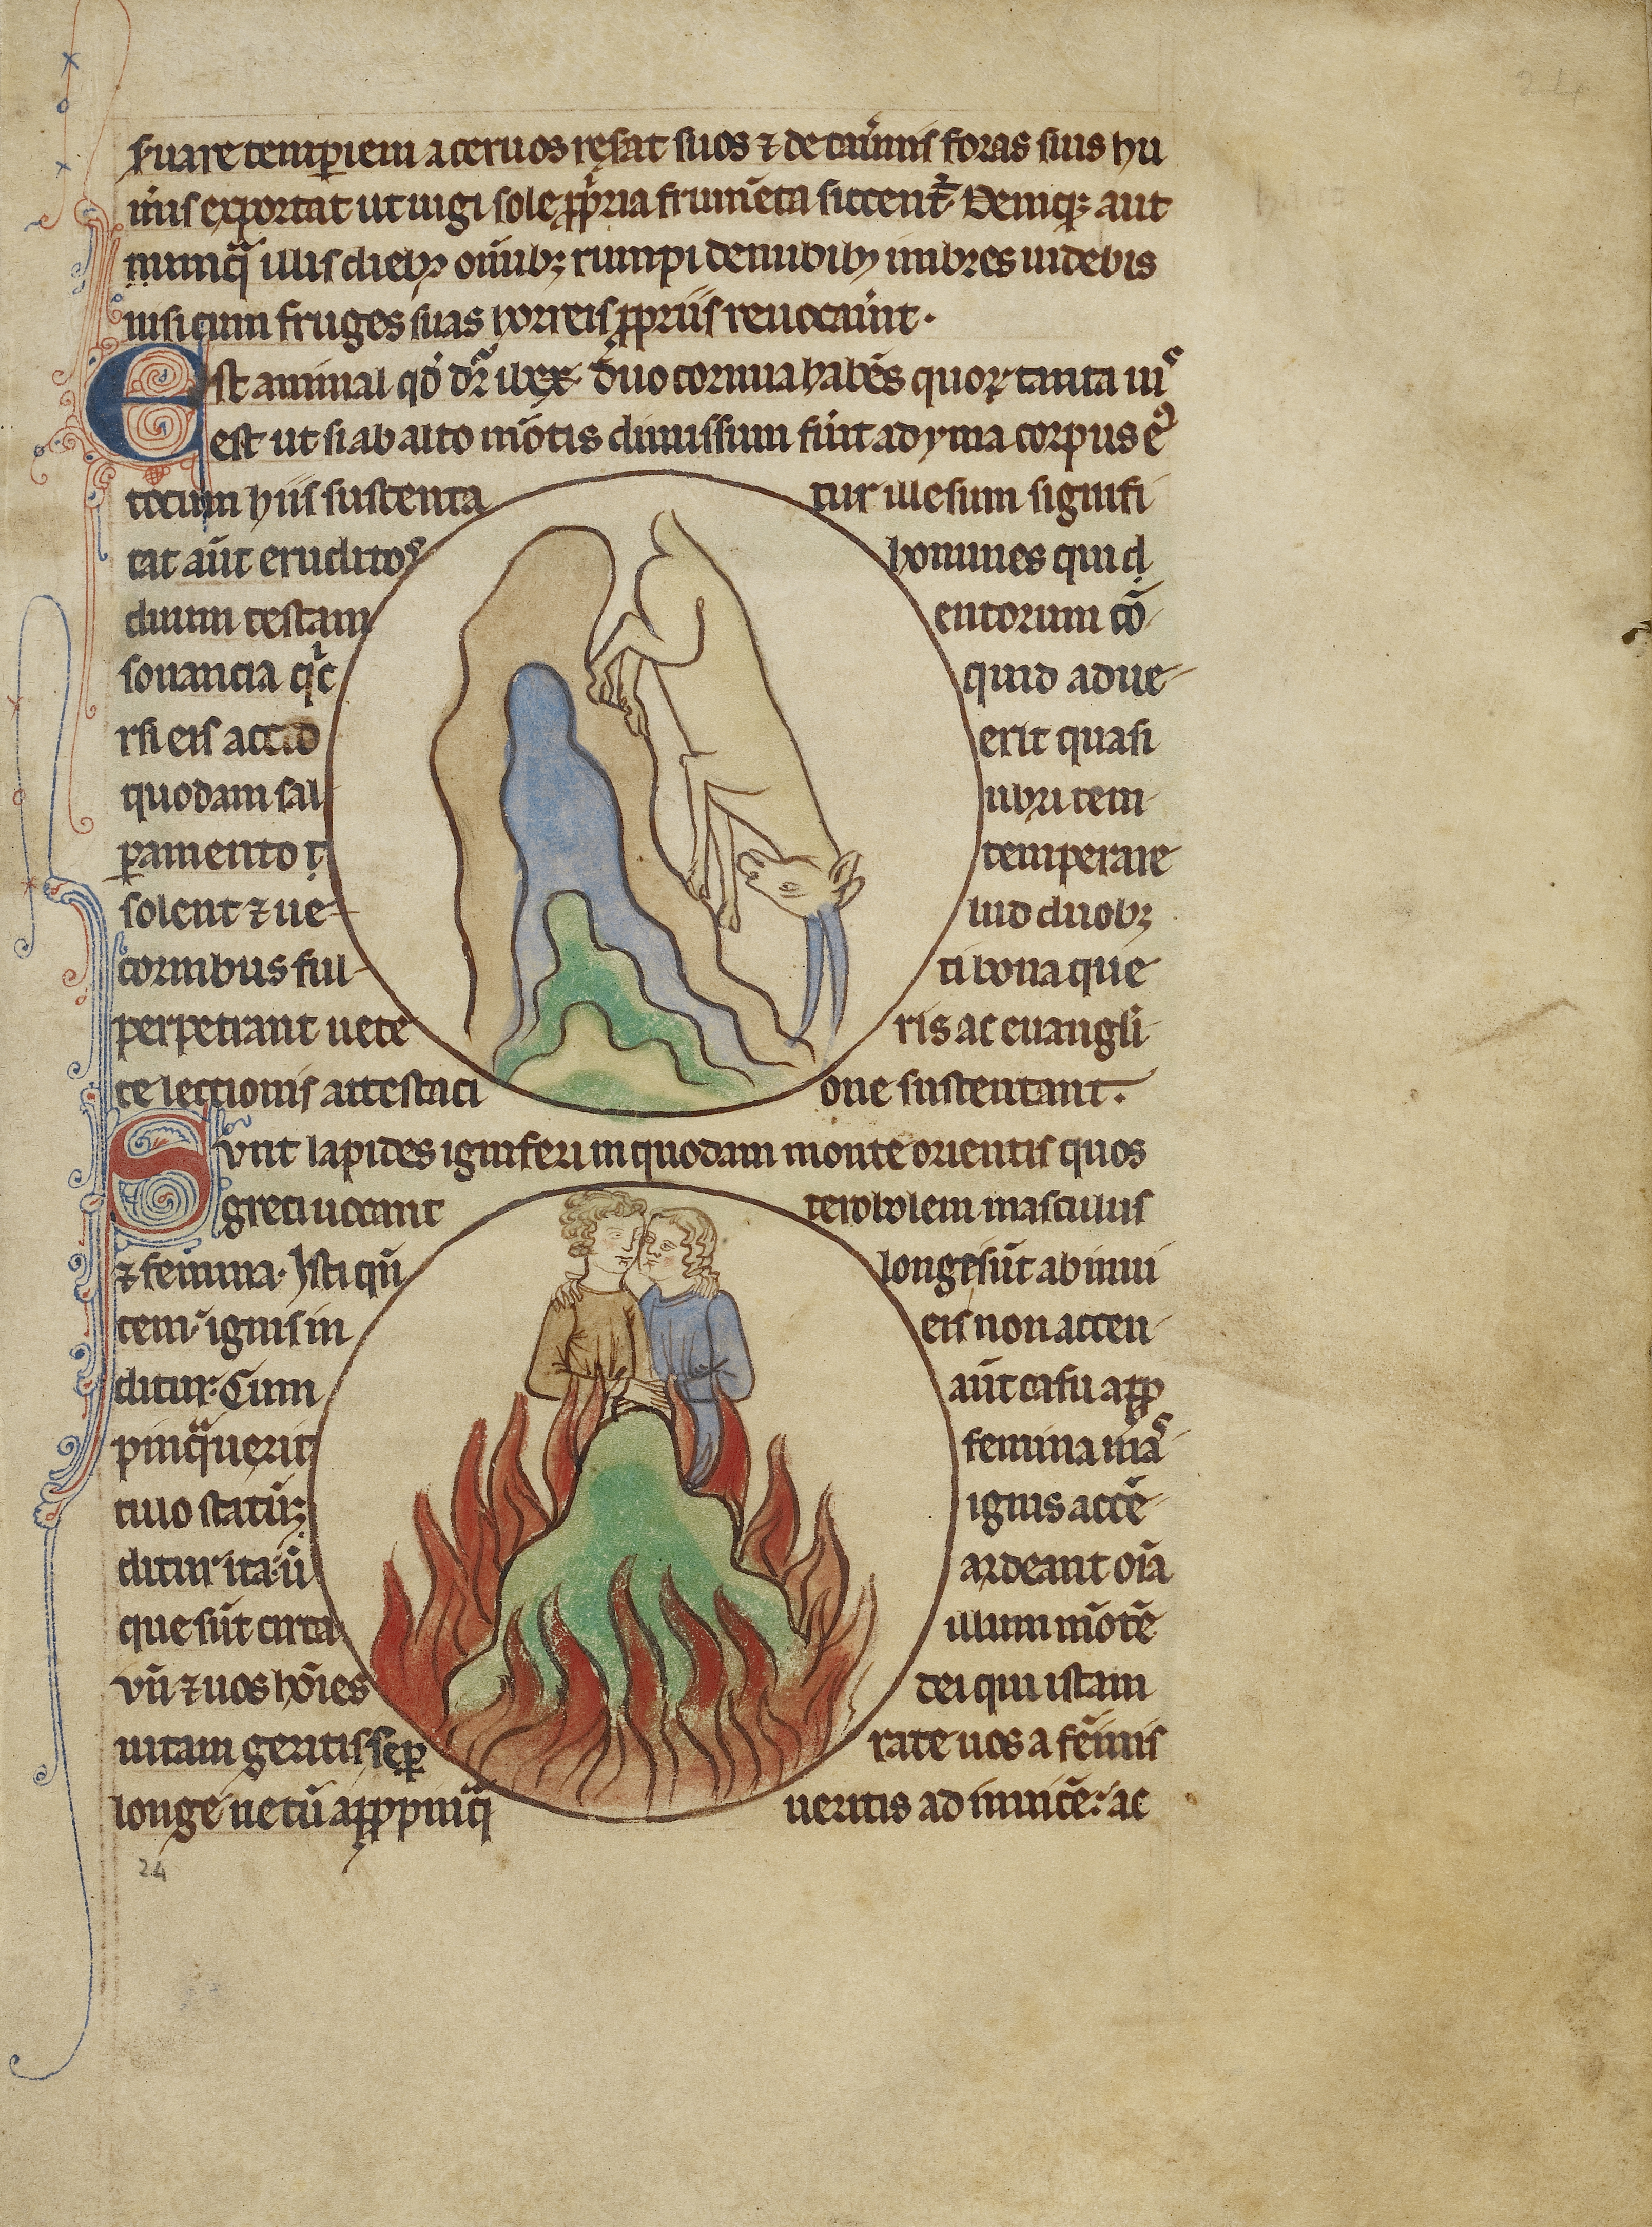 ẜuare temꝑiem aceruos reẜat suos ⁊ de cauͥnis foras suis hu
mͥis exportat ut iugi sole ꝓpͥria frum̄eta siccent᷑. Deniqꝫ aut
nunqᷓ illis diebꝰ om̄ibꝫ rumpi de nubibꝰ imbres uidebis
nisi cum fruges suas horreis ꝓpriis reuocauͥnt.
Est animal qd̓ dr̄ ibex duo cornua habēs quoꝝ tanta uiˢ
est ut si ab alto mōtis dimissum fuͥit ad yma corpus eꝰ
totum hiis sustenta tur illesum signifi
cat aūt eruditoˢ homines qui d
diuum testam entorum cō
sonancia qͥc quid adue
rsi eis accid erit quasi
quodam sal ubri tem
ꝑamento t temperare
solent ⁊ ue lud duobꝫ
cornibus ful ti bona que
perpetrant uete ris ac euangli
ce lectionis attestaci one sustentant.
Sunt lapides igniferi in quodam monte orientis quos
greci uocant terobolem masculus
⁊ femina. Isti qn̄ longe sūt ab inui
cem ignis in eis non accen
ditur. Cum aūt casu aꝓ
pinqᷓuerit femina maˢ
culo statīꝫ ignis accē
ditur ita ū ardeant oīa
que sūt circa illum mōtē
vn̄ ⁊ uos hōies dei qui istam
uitam geritis seꝑ rate uos a fēinis
longe ne cū aꝓpinqᷓ ueritis ad inuicē ac
24
24